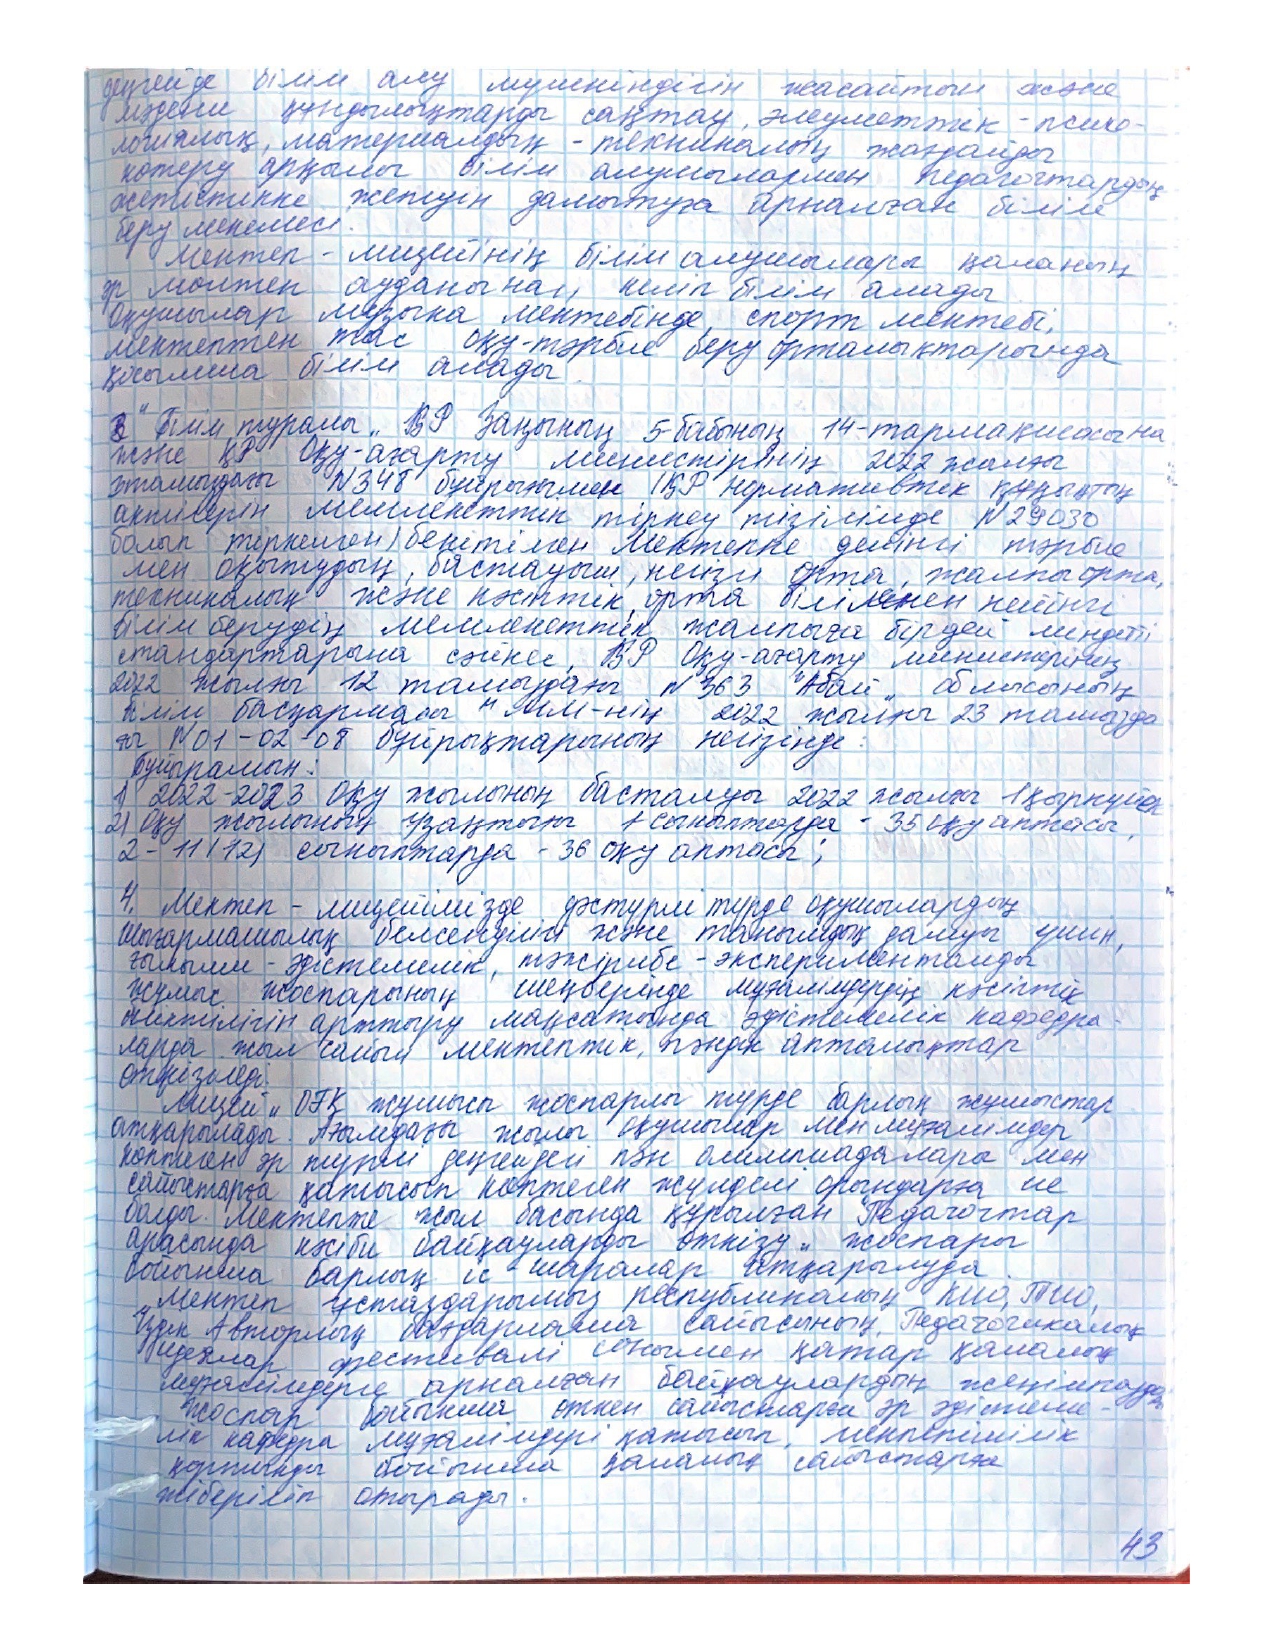 деңгейде білім алу мүмкіндігін жасайтын және
мәдени құндылықтарды сақтау, әлеуметтік - психо-
логиялық, материалдық - техникалық жағдайды
көтеру арқылы білім алушылармен педагогтардың
жетістікке жетуін дамытуға арналған білім
беру мекемесі.
Мектеп - лицейінің білім алушылары қаланың
әр ауданынан келіп білім алады
Оқушылар музыка мектебінде, спорт мектебі,
мектептен тыс оқу-тәрбие беру орталықтарында
қосымша білім алады
3 "Білім туралы" ҚР Заңының 5-бабының 14-тармақшасына
және ҚР Оқу-ағарту министрінің 2022 жылғы
3 тамыздағы №348 бұйрығымен (ҚР нормативтік құқықтық
актілерін мемлекеттік тіркеу тізілімінде №29030
болып тіркелген) бекітілген Мектепке дейінгі тәрбие
мен оқытудың, бастауыш, негізгі орта, жалпы орта,
техникалық және кәсіптік, орта білімнен кейінгі
білім берудің мемлекеттік жалпыға бірдей міндетті
стандартарына сәйкес, ҚР Оқу-ағарту министрінің
2022 жылғы 12 тамыздағы №363 "Абай" облысының
білім басқармасы" ММ-нің 2022 жылғы 23 тамызда
ғы №01-02-08 бұйрықтарының негізінде:
бұйырамын:
1) 2022-2023 оқу жылының басталуы 2022 жылғы 1 қыркүйек
2) Оқу жылының ұзақтығы 1 сыныптарда - 35 оқу аптасы,
2 - 11 (12) сыныптарда - 36 оқу аптасы;
4. Мектеп - лицейімізде дәстүрлі түрде оқушылардың
шығармашылық белсенділігі және танымдық дамуы үшін,
ғылыми - әдістемелік, тәжірибе - эксперименталды
жұмыс жоспарының шеңберінде мұғалімдердің кәсіптік
біліктілігін арттыру мақсатында әдістемелік кафедра-
ларда жыл сайын мектептік, пәндік апталықтар
өткізіледі.
Лицей" ОӘК жұмысы жоспарлы түрде барлық жұмыстар
атқарылады. Ағымдағы жылы оқушылар мен мұғалімдер
көптеген әр түрлі деңгейдегі пән олимпиадалары мен
сайыстарға қатысып көптеген жүлделі орындарға ие
болды. Мектепте жыл басында құрылған "Педагогтар
арасында кәсіби байқауларды өткізу" жоспары
бойынша барлық іс шаралар атқарылуда.
Мектеп ұстаздарымыз республикалық КИО, ТИО,
Үздік Авторлық бағдарлама сайысының, Педагогикалық
идеялар фестивалі сонымен қатар қалалық
мұғалімдерге арналған байқаулардың жеңімпаздары
Жоспар бойынша өткен сайыстарға әр әдістеме-
лік кафедра мұғалімдері қатысып, мектепішілік
қорытынды бойынша қаланың сайыстарға
жіберіліп отырады.
43